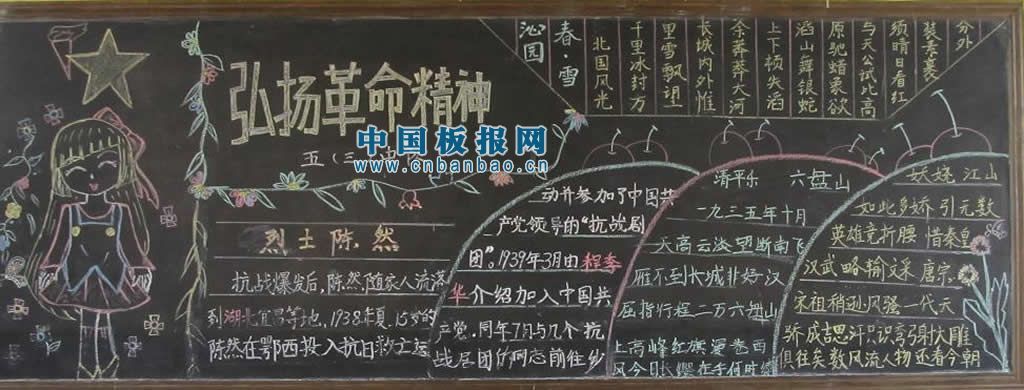 弘扬革命精神
中国板报网
www.cnbanbao.cn
五(三
烈士陈然
抗战爆发后,陈然随家人流落
到湖北宜昌等地,1938年夏,15岁的
陈然在鄂西投入抗日救亡运
动并参加了中国共
产党领导的"抗战剧
团"。1939年3月由程季
华介绍加入中国共
产党.同年7月与几个抗
战居团的同志前往
沁园
春·雪
北国风光
千里冰封万
里雪飘望
长城内外惟
余莽莽大河
上下顿失滔
滔山舞银蛇
原驰蜡象欲
与天公试比高
须晴日看红
装素裹
分外
清平乐 六盘山
一九三五年十月
天高云淡望断南飞
雁不到长城非好汉
屈指行程二万六盘山
上高峰红旗漫卷西
风今日长缨在手何时缚
妖娆江山
如此多娇引无数
英雄竞折腰惜秦皇
汉武略输文采唐宗
宋祖稍逊风骚一代天
骄成吉思汗只识弯弓射大雕
俱往矣数风流人物还看今朝